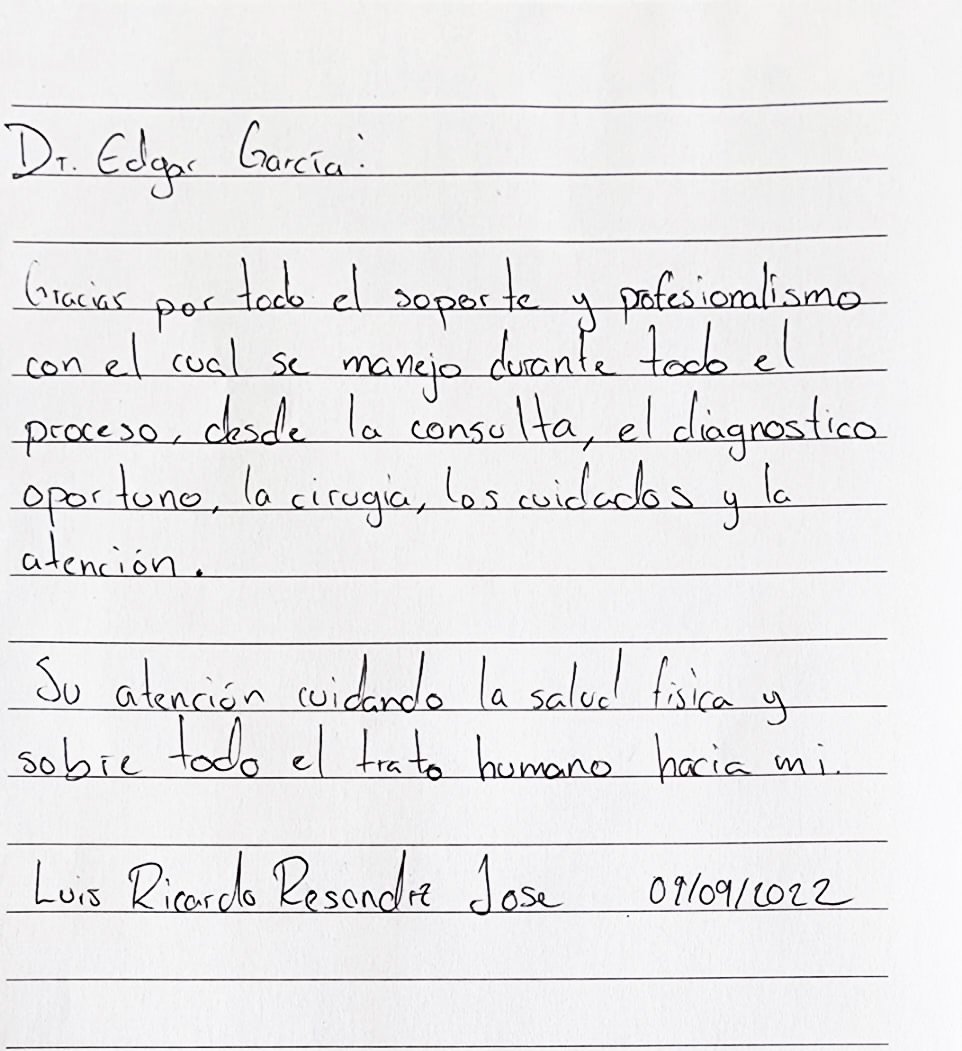 Dr. Edgar García:
Gracias por todo el soporte y profesionalismo
con el cual se manejo durante todo el
proceso, desde la consulta, el diagnostico
oportuno, la cirugía, los cuidados y la
atención.
Su atención cuidando la salud física y
sobre todo el trato humano hacia mi.
Luis Ricardo Jose 09/09/2022